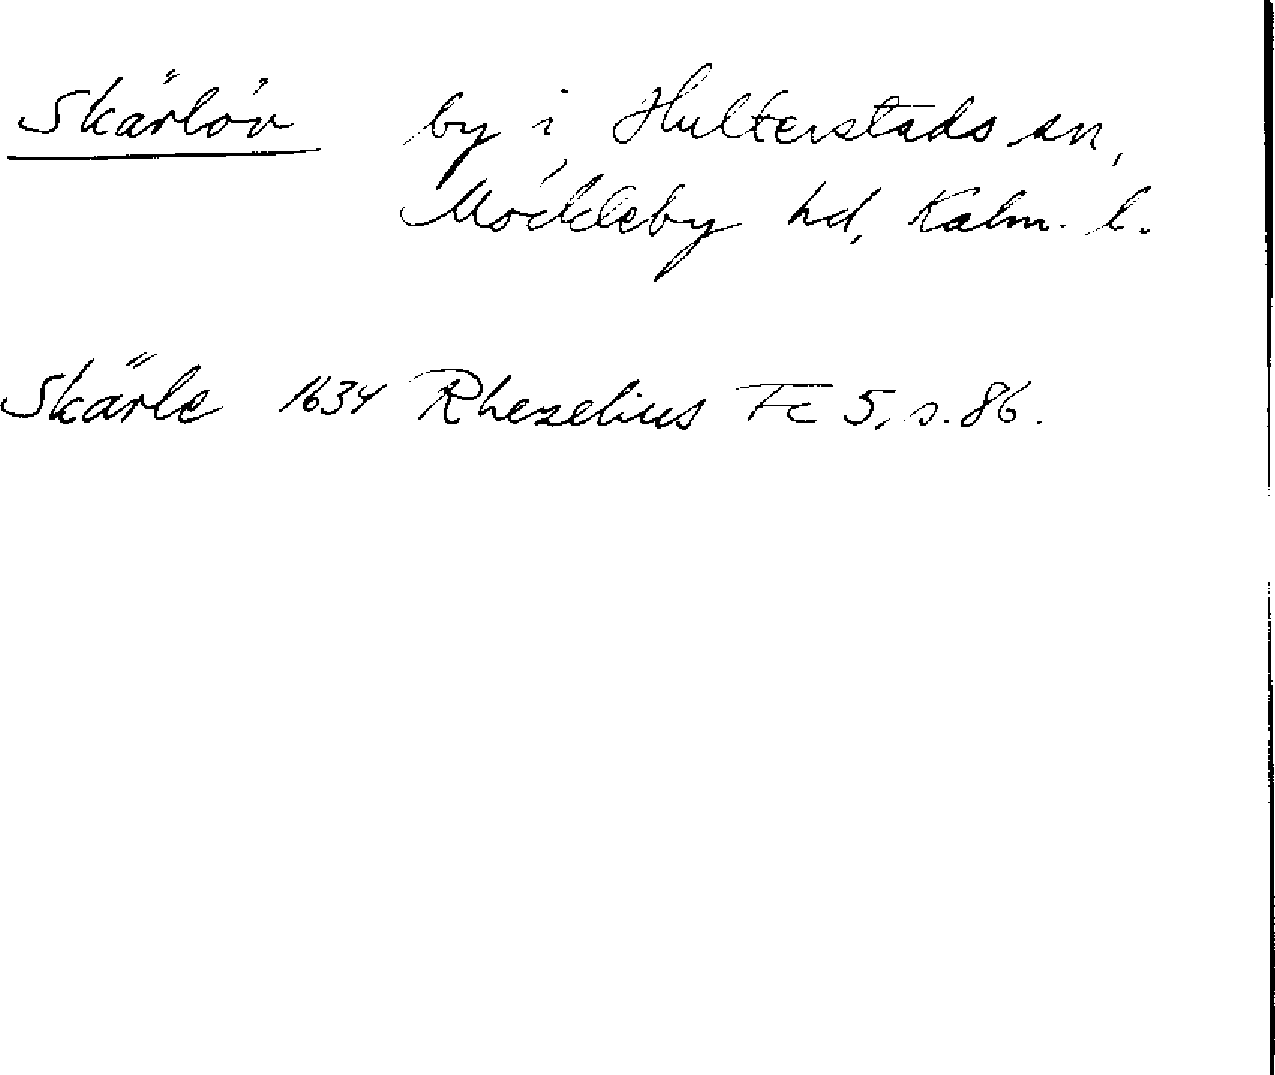 Skärlöv by i Hulterstads sn,
Möckleby hd, Kalm. l.
Skärle 1634 Rhezelius Fc 5, s. 86.